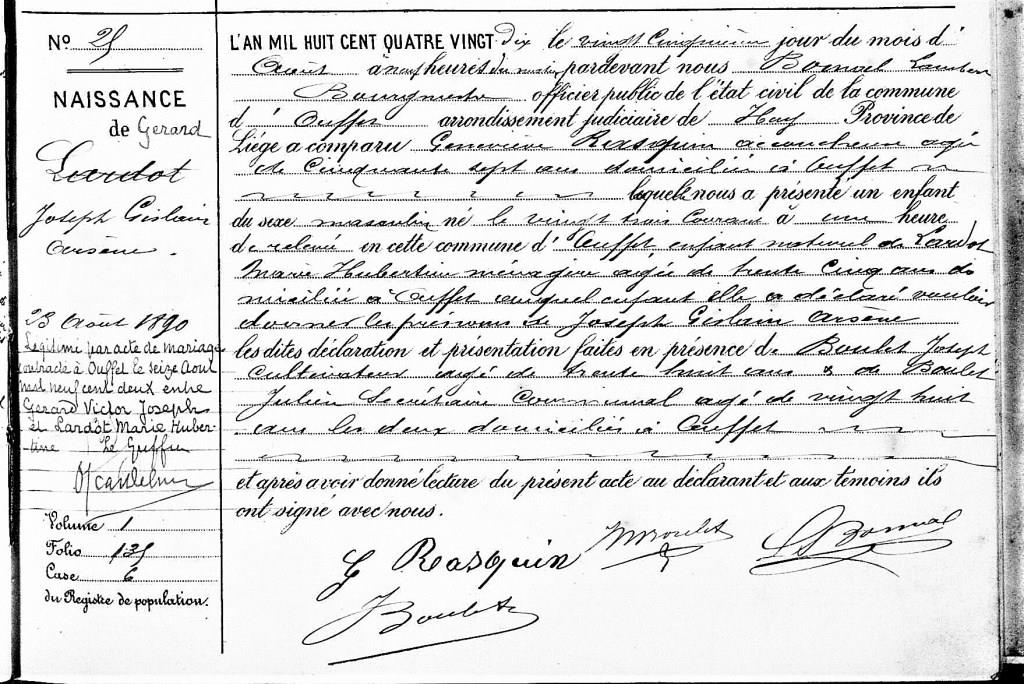 No 25
NAISSANCE
de Gerard
Lardot
Joseph Gislain
Arsène.
23 Août 1890
Légitimé par acte de mariage
contracté à Ouffet le seize Août
mil neuf cent deux entre
Gerard Victor Joseph
et Lardot Marie Huber-
tine Le Greffier
Volume 1
Folio 135
Case 6
du Registre de population.
L'AN MIL HUIT CENT QUATRE VINGT dix le vingt cinquième jour du mois d'
Août à neuf heures du matin pardevant nous Bomal Lambert
Bourgmestre officier public de l'état civil de la commune
d' Ouffet arrondissement judiciaire de Huy Province de
Liége a comparu Geneviève Rasquin accoucheuse agée
de cinquante sept ans domiciliée à Ouffet
laquelle nous a présenté un enfant
du sexe masculin né le vingt trois courant à une heure
de relevée en cette commune d' Ouffet, enfant naturel de Lardot
Marie Hubertine ménagère agée de trente cinq ans do
miciliée à Ouffet auquel enfant elle a déclaré vouloir
donner les prénoms de Joseph Gislain Arsène
les dites déclaration et présentation faites en présence de Boulet Joseph
Cultivateur agé de trente huit ans & de Boulet
Julien Secrétaire Communal agé de vingt huit
ans les deux domiciliés à Ouffet
et après avoir donné lecture du présent acte au déclarant et aux témoins ils
ont signé avec nous.
G Rasquin Boulet Bomal
J Boulet